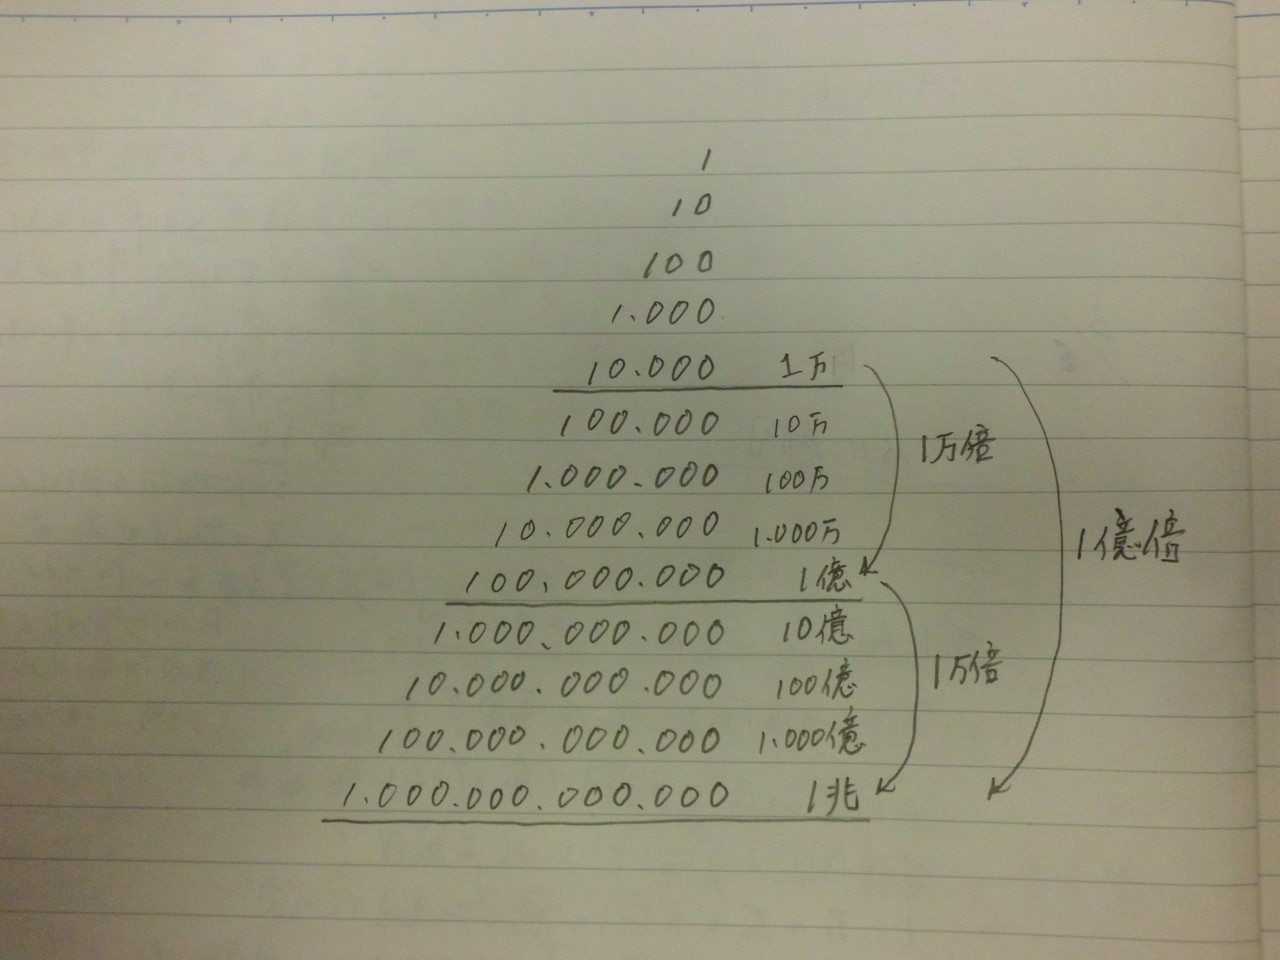 1
10
100
1.000
10.000 1万
100.000 10万
1.000.000 100万
10.000.000 1.000万
100.000.000 1億
1.000.000.000 10億
10.000.000.000 100億
100.000.000.000 1.000億
1.000.000.000.000 1兆
1万倍
1万倍
1億倍